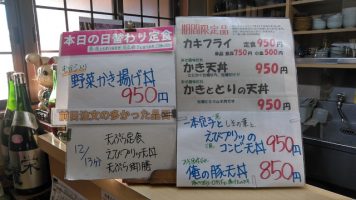 本日の日替わり定食
野菜かき揚げ丼
950円
前日注文の多かった品
12/13分
天ぷら定食
えびプリッの天丼
天ぷら御膳
期間限定品
カキフライ 定食950円
単品 750円 小皿 500円
かき天丼
950円
かきととりの天丼
950円
えびプリッの
コンビ天丼 950円
俺の豚天丼 850円